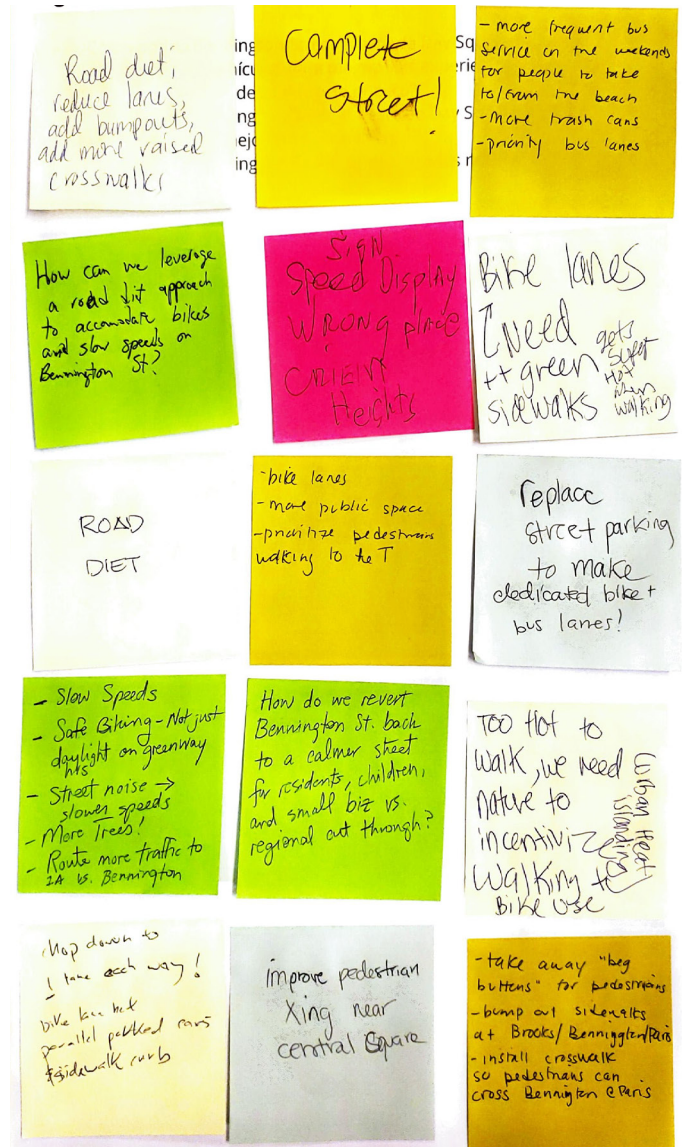 Road diet,
reduce lanes,
add bumpouts,
add more raised
crosswalks
Complete
Street!
- more frequent bus
service on the weekends
for people to take
to/from the beach
- More trash cans
- priority bus lanes
How can we leverage
a road
approach
to accomodate bikes
and slow speeds on
Bennington St?
Sign
Speed Display
WRONG place
ORIENT
Heights
Bike lanes
Need
++ green
sidewalks
gets
super
HOT
when
walking
ROAD
DIET
- bike lanes
- more public space
- prioritize pedestrians
walking to the T
replace
street parking
to make
dedicated bike +
bus lanes!
- Slow Speeds
- Safe Biking - Not just
daylight on greenway
hrs
- Street noise →
slower speeds
- More Trees!
- Route more traffic to
1A vs. Bennington
How do we revert
Bennington St. back
to a calmer street
for residents, children,
and small biz vs.
regional cut through?
TOO HOT to
walk, we need
nature to
incentiviz
walking +
Bike use
Urban Heat
islanding
down to
1 lane each way!
bike lane
parallel parked cars
sidewalk curb
improve pedestrian
Xing near
central Square
- take away "beg
buttons" for pedestrians
- bump out sidewalks
at Brooks/Bennington/Paris
- install crosswalk
so pedestrians can
cross Bennington @ Paris